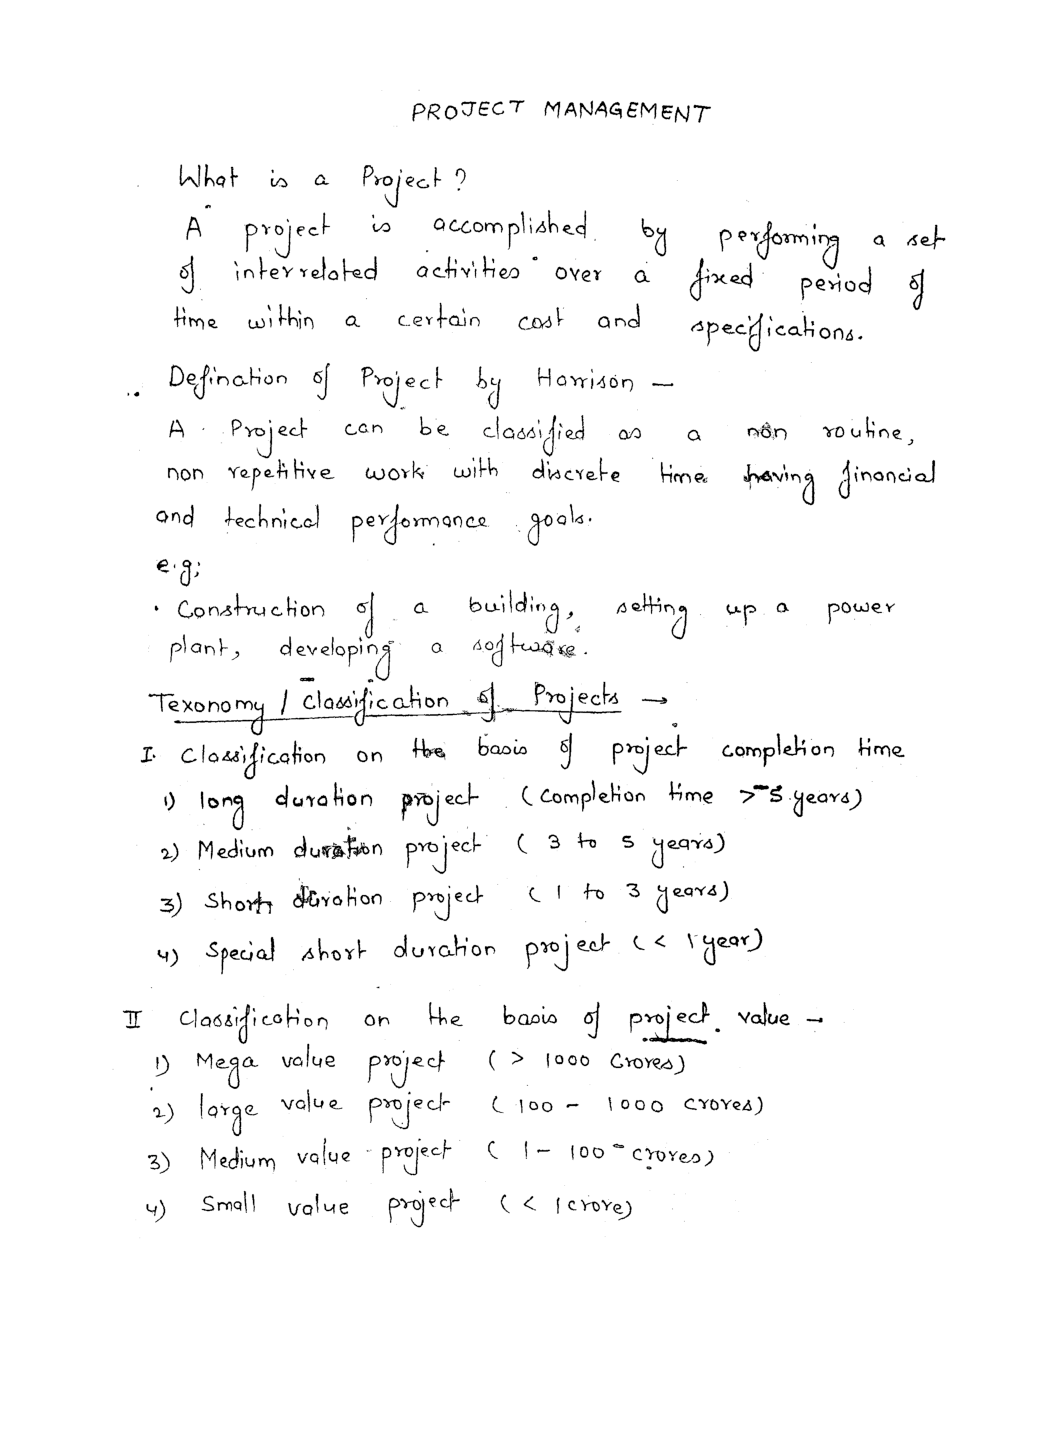 PROJECT MANAGEMENT
What is a Project?
A project is accomplished by performing a set
of interrelated activities over a fixed period of
time within a certain cost and specifications.
Defination of Project by Harrison –
A Project can be classified as a non routine,
non repetitive work with discrete time having financial
and technical performance goals.
e.g;
• Construction of a building, setting up a power
plant, developing a software.
Texonomy / Classification of Projects →
I. Classification on the basis of project completion time
1) long duration project (completion time > 5 years)
2) Medium duration project (3 to 5 years)
3) Short duration project (1 to 3 years)
4) Special short duration project (< 1 year)
II Classification on the basis of project value →
1) Mega value project (> 1000 Crores)
2) large value project (100 – 1000 crores)
3) Medium value project (1 – 100 crores)
4) Small value project (< 1 crore)